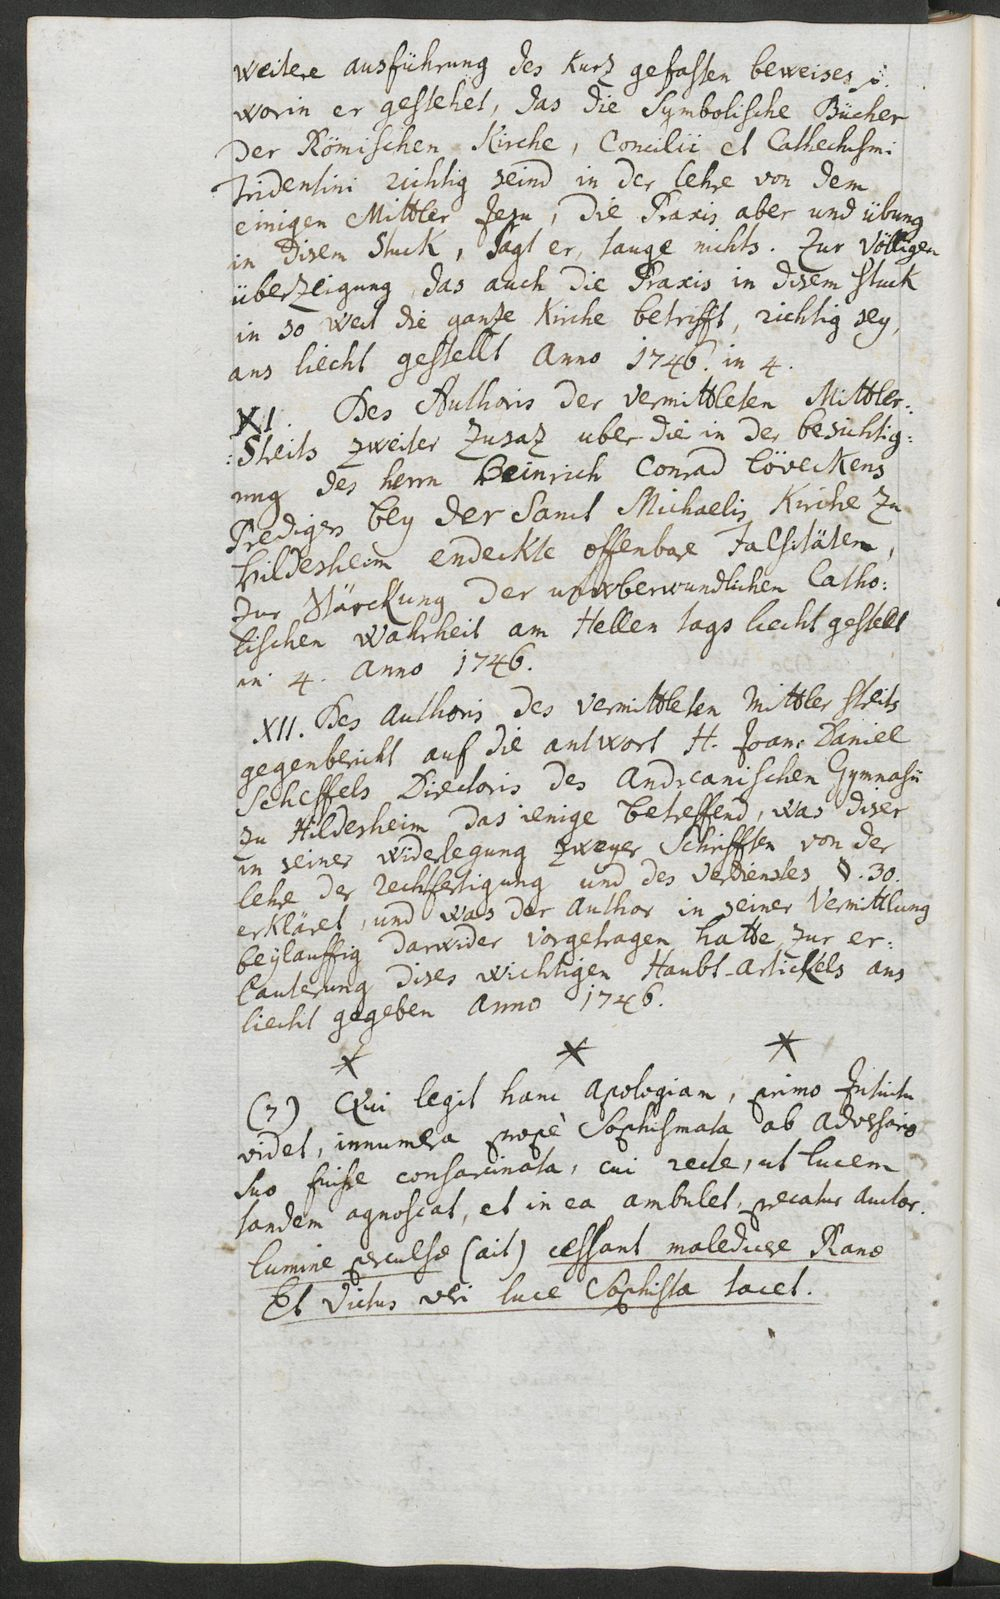 weitere ausführung des kurz gefasten beweises p.
worin er gestehet, das die Symbolische Bücher
der Römischen Kirche, Concilii et Cathechismi
Tridentini richtig seind in der lehre von dem
einigen Mittler Jesu, die Praxis aber und übung
in disem Stuck, sagt er, tauge nichts. Zur völligen
überzeigung, das auch die Praxis in disem stuck
in so weit die ganze Kirche betrifft, richtig sey,
ans liecht gestellt Anno 1746. in 4.
XI. Des Authoris der vermittleten Mittler-:
:Streits zweiter Zusaz uber die in der besichtig:
ung des herrn Heinrich Conrad Löveckens
Predigers bey der Sanct Michaelis Kirche zu
Hildesheim endeckte offenbare Falsitäten,
Zur Stärckung der unüberwundlichen Catho:
lischen Wahrheit am Hellen tags liecht gestellt
in 4. Anno 1746.
XII. Des Authoris des vermittleten Mittler streits
gegenbericht auf die antwort H. Joan: Daniel
Scheffels Directoris des Andreanischen Gymnasii
zu Hildesheim das ienige betreffend, was diser
in seiner widerlegung zweyer Schrifften von der
lehre der rechfertigung und des verdienstes §. 30.
erkläret, und was der Author in seiner Vermittlung
beylauffig darwider vorgetragen hatte, zur er:
lauterung dises wichtigen Haubt-Artickels ans
liecht gegeben Anno 1746.
* * *
(7) Qui legit hanc Apologiam, primo Intuitu
videt, innumera propè Sophismata ab Adversario
suo fuisse consarcinata, cui recte, ut lucem
tandem agnoscat, et in ea ambulet, precatur Auctor.
Lumine perculsæ (ait) cessant maledicere Ranæ
Et Victus veri luce Sophista tacet.